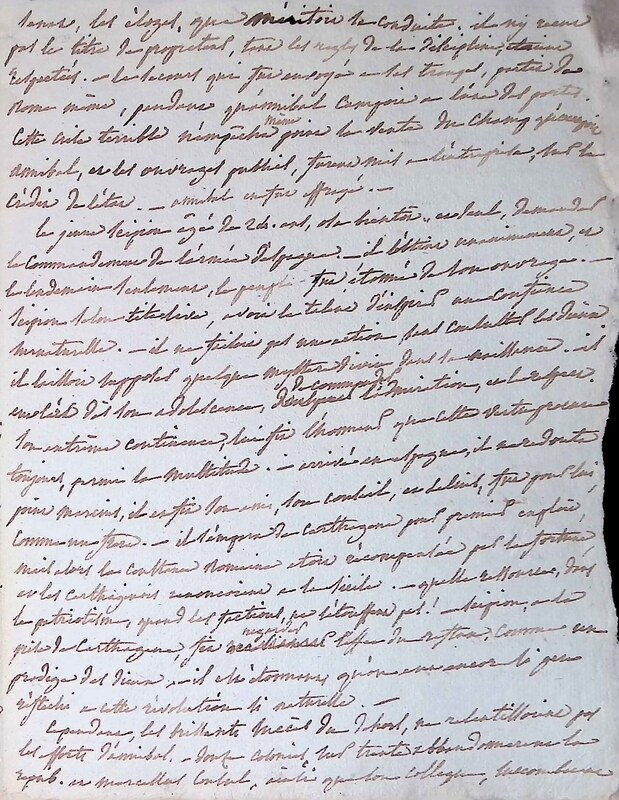 senat, les éloges, que méritoit sa conduite. il n'y recut
pas le titre de propreteur, tant les regles de la discipline étoient
respectées. — le secours qui fut envoyé a ses troupes, partit de
Rome même, pendant qu'annibal campoit a l'une des portes.
Cette crise terrible n'empêcha même point la vente du champ qu'occupoit
annibal, et les ouvrages publics, furent mis a l'entreprise, sur le
crédit de l'état. — annibal en fut effrayé. —
le jeune scipion âgé de 24. ans, osa bientôt, et seul, demander
le commandement de l'armée d'espagne. — il l'obtint unanimement, et
le lendemain seulement, le peuple fut étonné de son ouvrage. —
scipion selon tite live, avoit le talent d'inspirer une confiance
surnaturelle. — il ne faisoit pas une action, sans consulter les dieux
il laissoit supposer quelque mystere divin dans sa naissance. — il
dès son adolescence, de commander l'admiration, et le respect
son extrême continence, lui fit l'honneur que cette vertu procure
toujours, parmi la multitude. — arrivé en espagne, il ne redouta
point marcius, il en fit son ami, son conseil, et Lelius, fut pour lui
comme un frere. — il s'empara de carthagene pour premier exploit,
mais alors la constance romaine étoit récompensée par la fortune
et les carthaginois renoncoient a la sicile. — quelle ressource, dans
le patriotisme, quand les factions, ne l'étouffent pas! — scipion, a la
prise de Carthagene, fit regarder l'effet du reflux, comme un
prodige des dieux, — il est étonnant, qu'on eut encore si peu
réfléchi a cette révolution si naturelle. —
Cependant, les brillants succès du dehors, ne ralentissoient pas
les efforts d'annibal. — douze colonies, sur trente abbandonnerent la
repub. et marcellus consul, ainsi que son collegue, succomberent